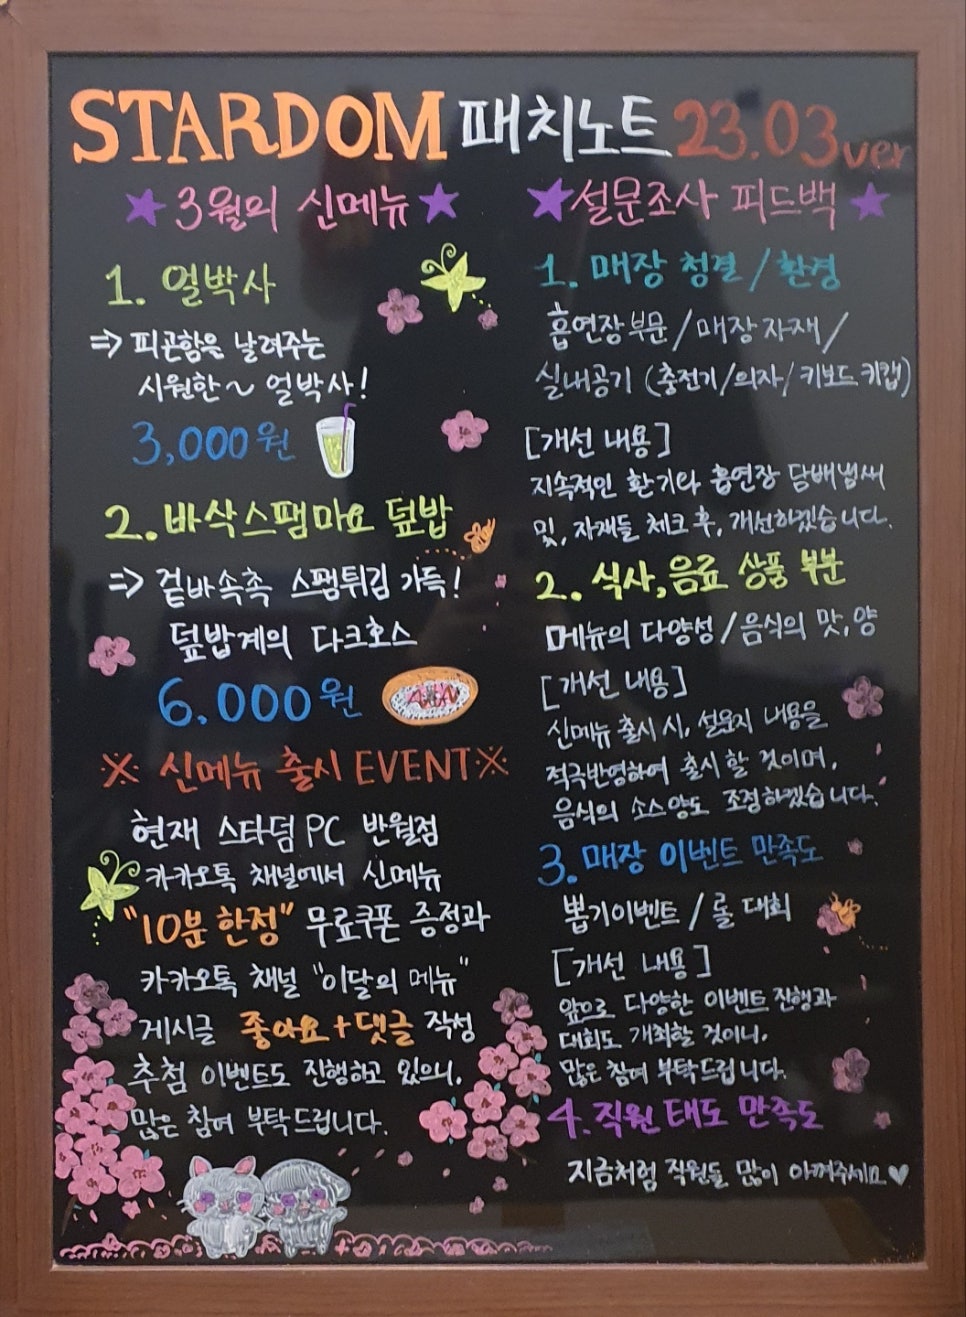 STARDOM 패치노트 23.03ver
3월의 신메뉴
1. 얼박사
⇒ 피곤함을 날려주는
시원한~ 얼박사!
3,000원
2. 바삭스팸마요 덮밥
⇒ 겉바속촉 스팸튀김 가득!
덮밥계의 다크호스
6,000원
※ 신메뉴 출시 EVENT※
현재 스타덤PC 반월점
카카오톡 채널에서 신메뉴
"10분 한정" 무료쿠폰 증정과
카카오톡 채널 "이달의 메뉴"
게시글 좋아요+댓글 작성
추첨 이벤트도 진행하고 있으니,
많은 참여 부탁드립니다.
설문조사 피드백
1. 매장 청결/환경
흡연장부문/매장자재/
실내공기 (충전기/의자/키보드키캡)
[개선 내용]
지속적인 환기와 흡연장 담배냄새
및, 자재들 체크 후, 개선하겠습니다.
2. 식사,음료 상품 부분
메뉴의 다양성/음식의 맛,양
[개선 내용]
신메뉴 출시 시, 설문지 내용을
적극반영하여 출시 할 것이며,
음식의 소스양도 조정하겠습니다.
3. 매장 이벤트 만족도
뽑기이벤트/롤 대회
[개선 내용]
앞으로 다양한 이벤트 진행과
대회도 개최할 것이니,
많은 참여 부탁드립니다.
4. 직원 태도 만족도
지금처럼 직원들 많이 아껴주세요♥